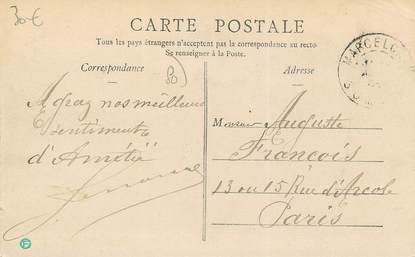 30 €
CARTE POSTALE
Tous les pays étrangers n'acceptent pas la correspondance au recto
Se renseigner à la Poste.
Correspondance
80
nos meilleurs
Sentiments
d'Amitié
Adresse
MARCELC
Monsieur Auguste
François
13 ou 15 Rue d'Arcole
Paris